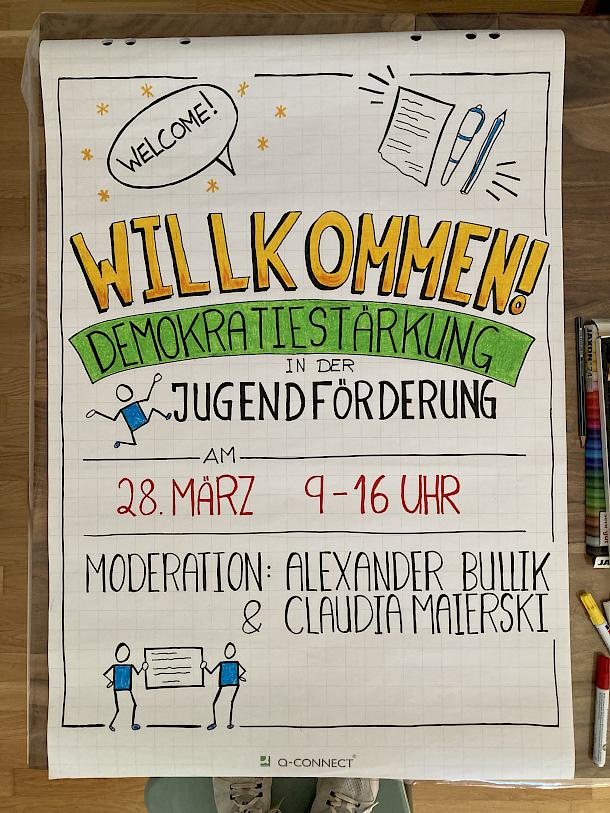 WELCOME!
WILLKOMMEN!
DEMOKRATIESTÄRKUNG
IN DER
JUGENDFÖRDERUNG
AM
28. MÄRZ 9-16 UHR
MODERATION: ALEXANDER BULLIK
& CLAUDIA MAIERSKI
Q-CONNECT®